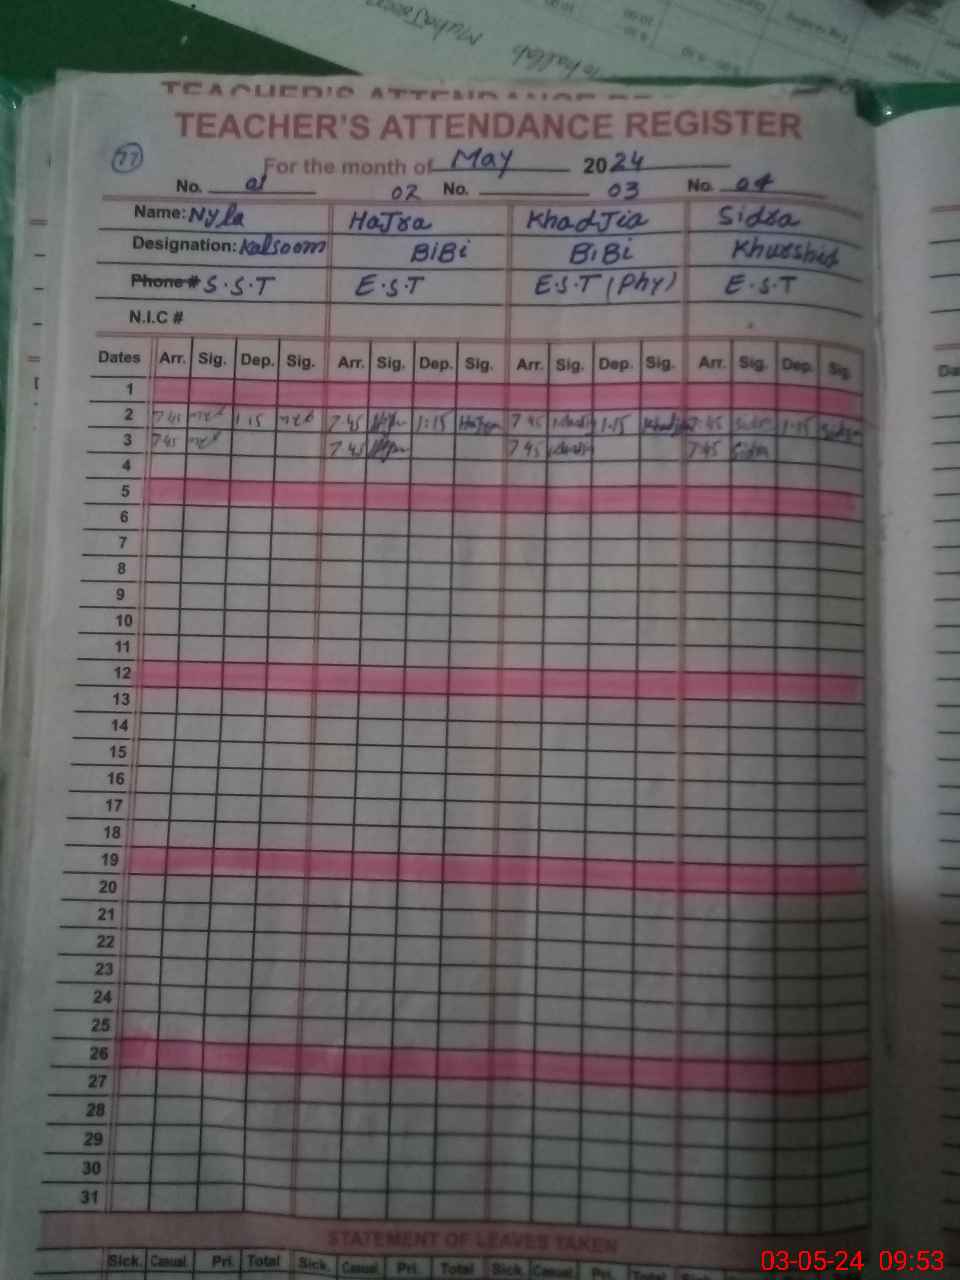 TEACHER'S ATTENDANCE RE
TEACHER'S ATTENDANCE REGISTER
77
For the month of May 2024
No. 01 02 No. 03 No. 04
Name: Nyla HaJra KhadJia Sidra
Designation: Kalsoom BiBi BiBi Khurshid
Phone # S.S.T E.S.T E.S.T (Phy) E.S.T
N.I.C #
Dates Arr. Sig. Dep. Sig. Arr. Sig. Dep. Sig. Arr. Sig. Dep. Sig. Arr. Sig. Dep. Sig.
1
2 7 45 1 15 7.45 1:15 HaJra 7 45 1.15 7.45 Sidra 1.15 Sidra
3 7 45 7 45 7 45 7.45 Sidra
4
5
6
7
8
9
10
11
12
13
14
15
16
17
18
19
20
21
22
23
24
25
26
27
28
29
30
31
STATEMENT OF LEAVES TAKEN
Sick. Casual Pri. Total Sick. Casual Pri. Total Sick. Casual Pri. Total
03-05-24 09:53